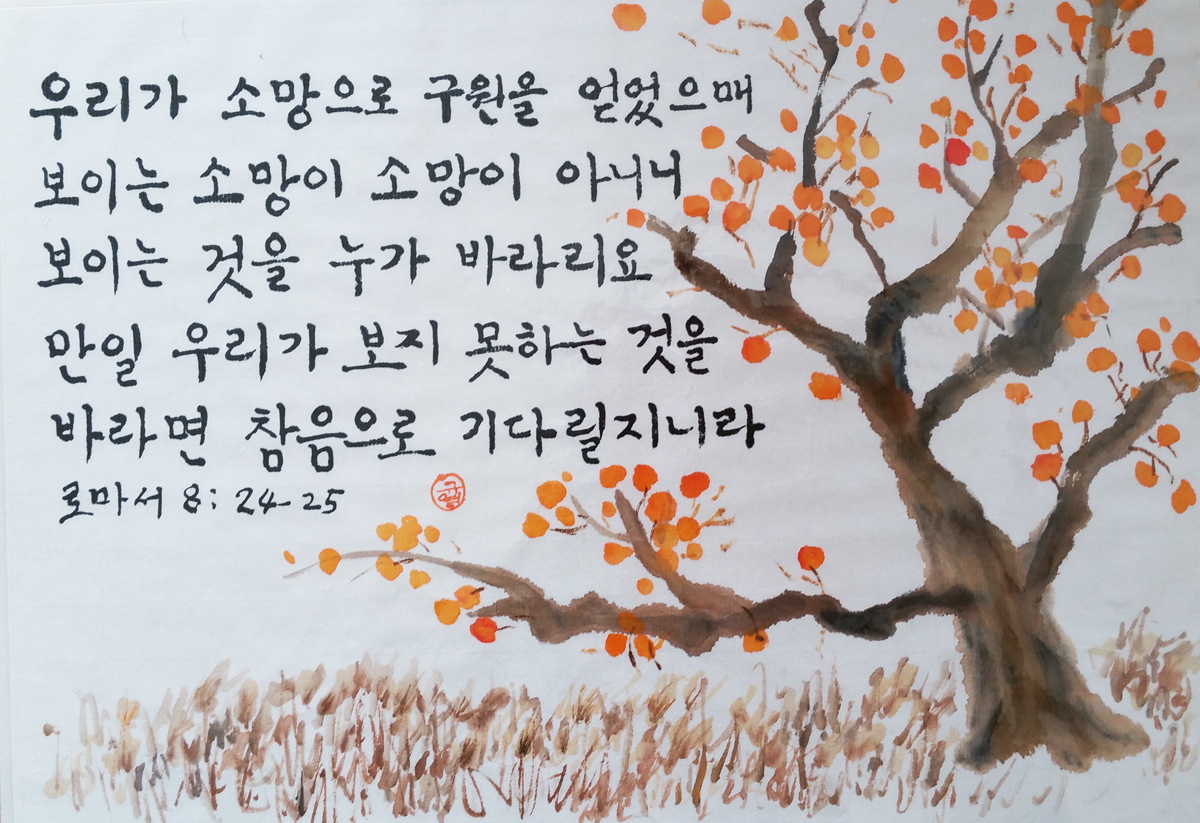 우리가 소망으로 구원을 얻었으매
보이는 소망이 소망이 아니니
보이는 것을 누가 바라리요
만일 우리가 보지 못하는 것을
바라면 참음으로 기다릴지니라
로마서 8: 24-25